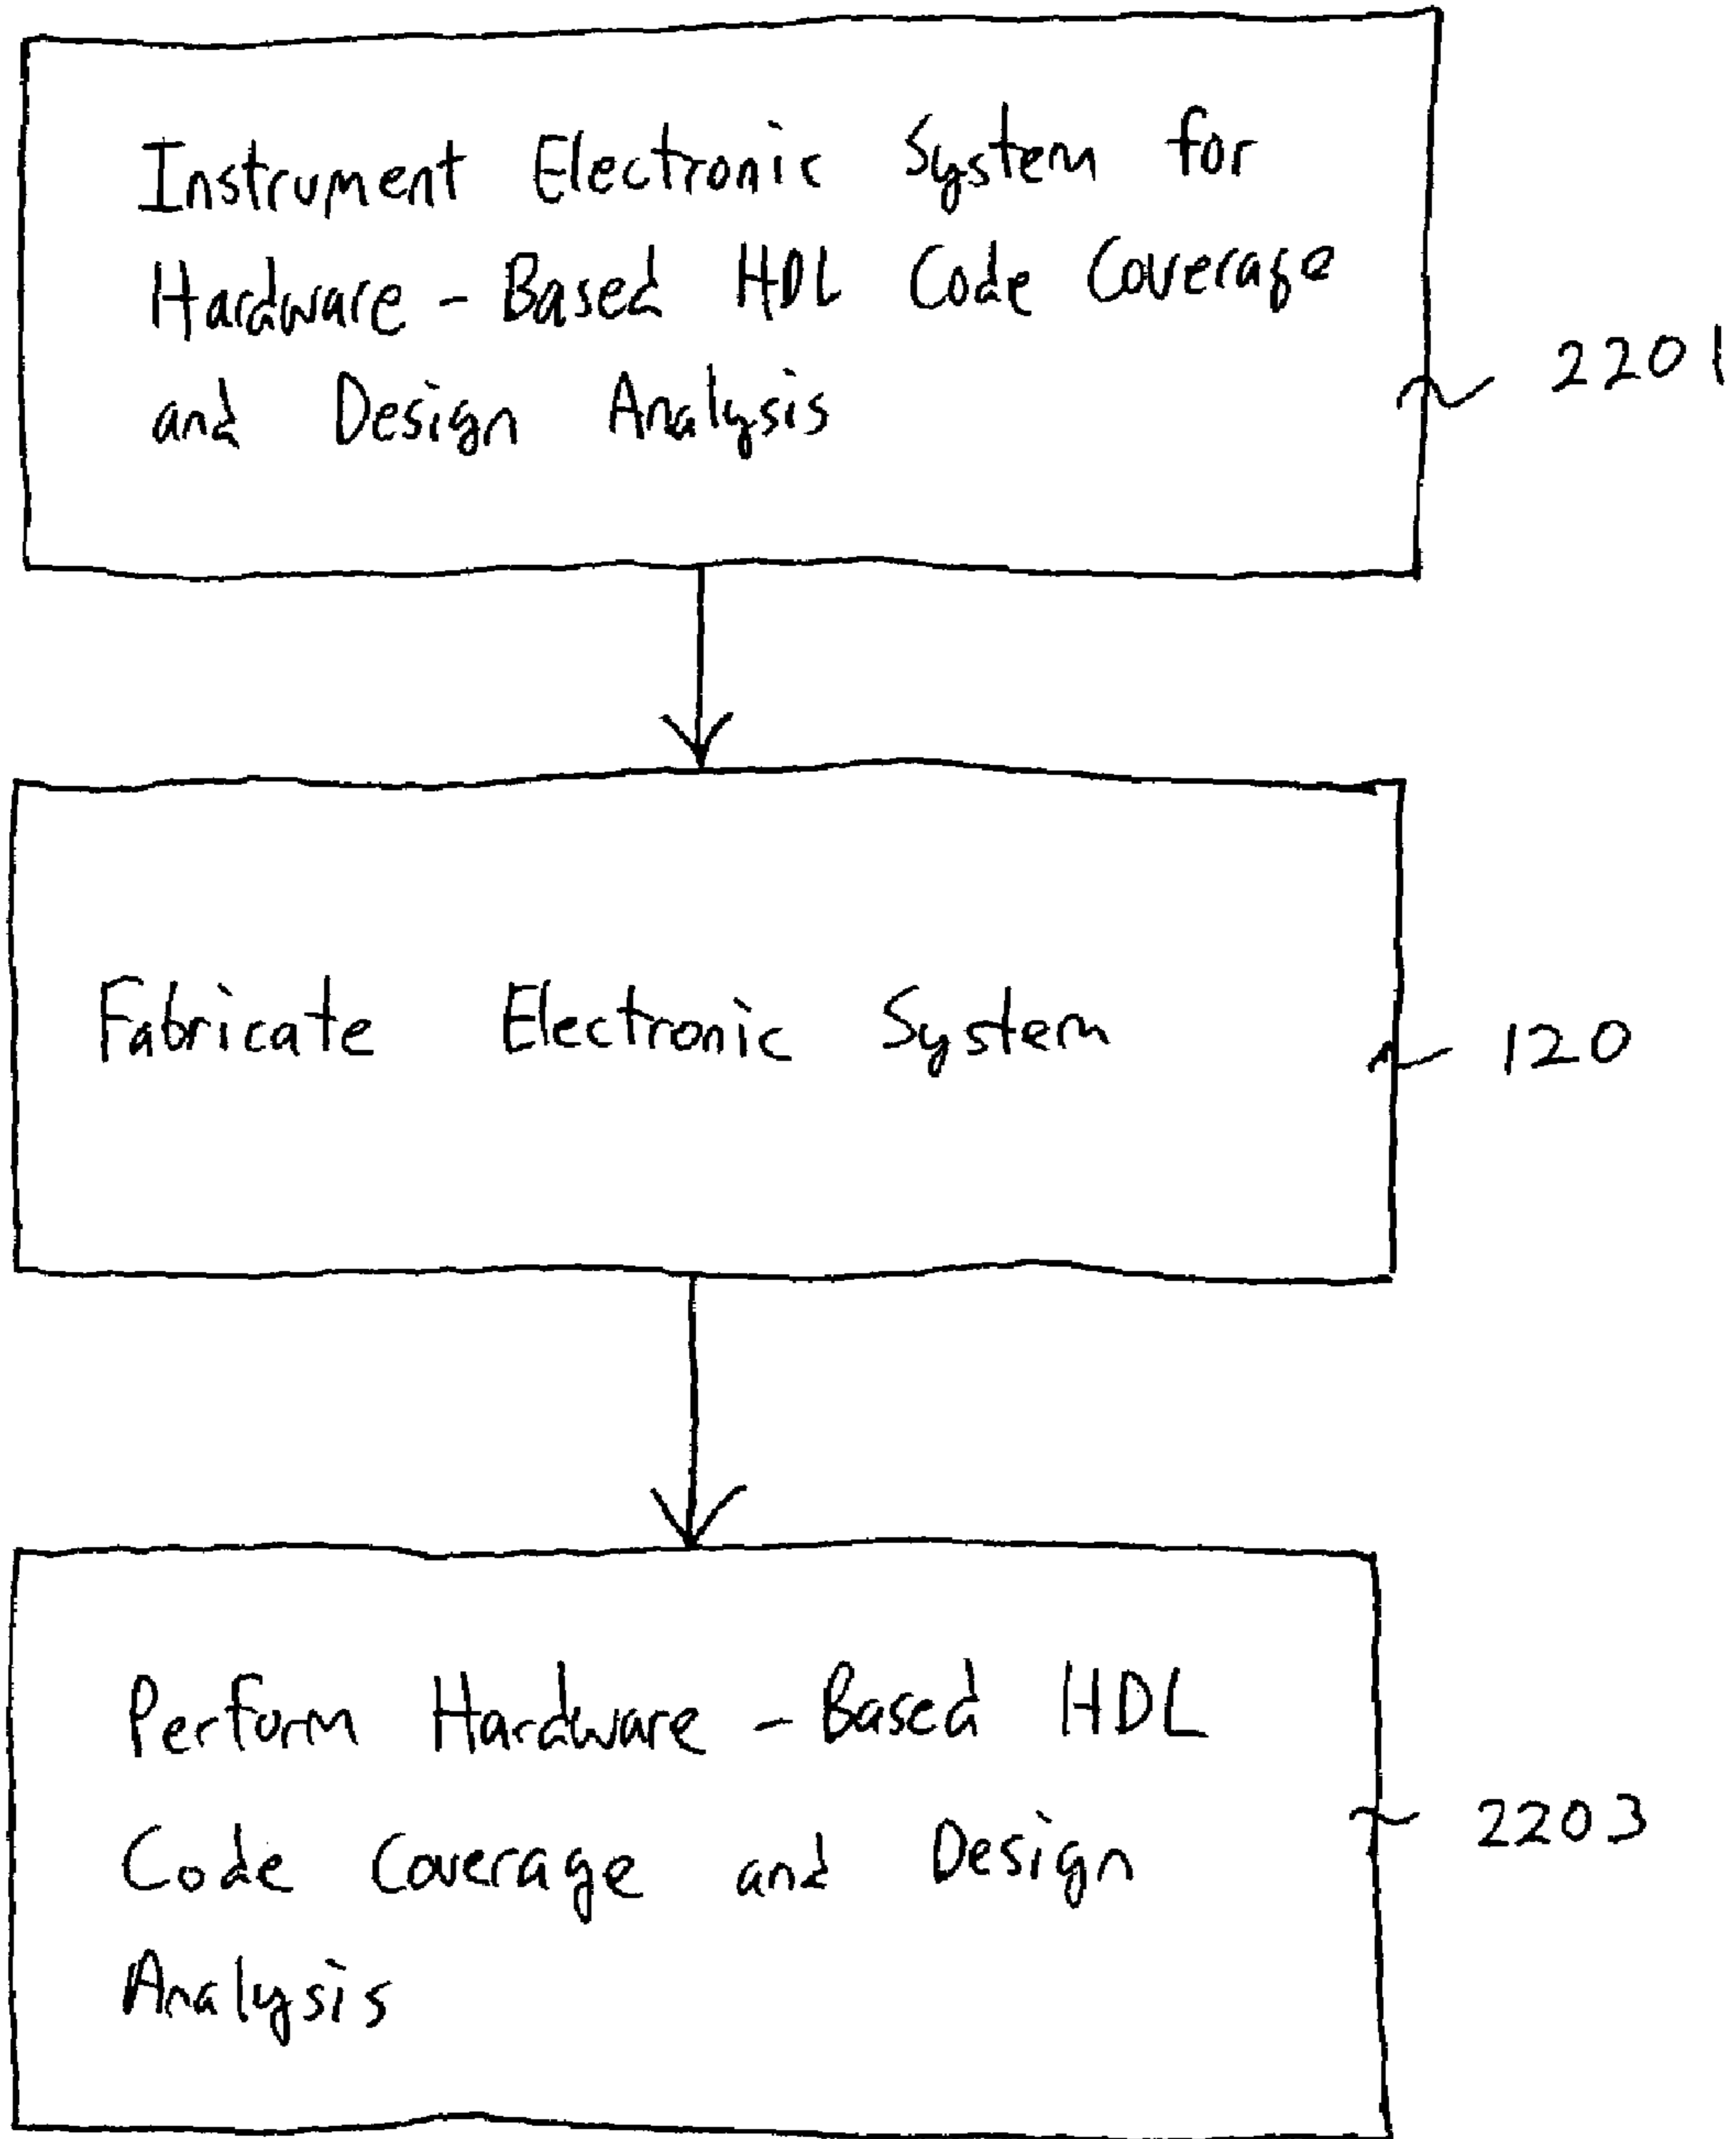 Instrument Electronic System for
Hardware - Based HDL Code Coverage
and Design Analysis
2201
Fabricate Electronic System
120
Perform Hardware - Based HDL
Code Coverage and Design
Analysis
2203